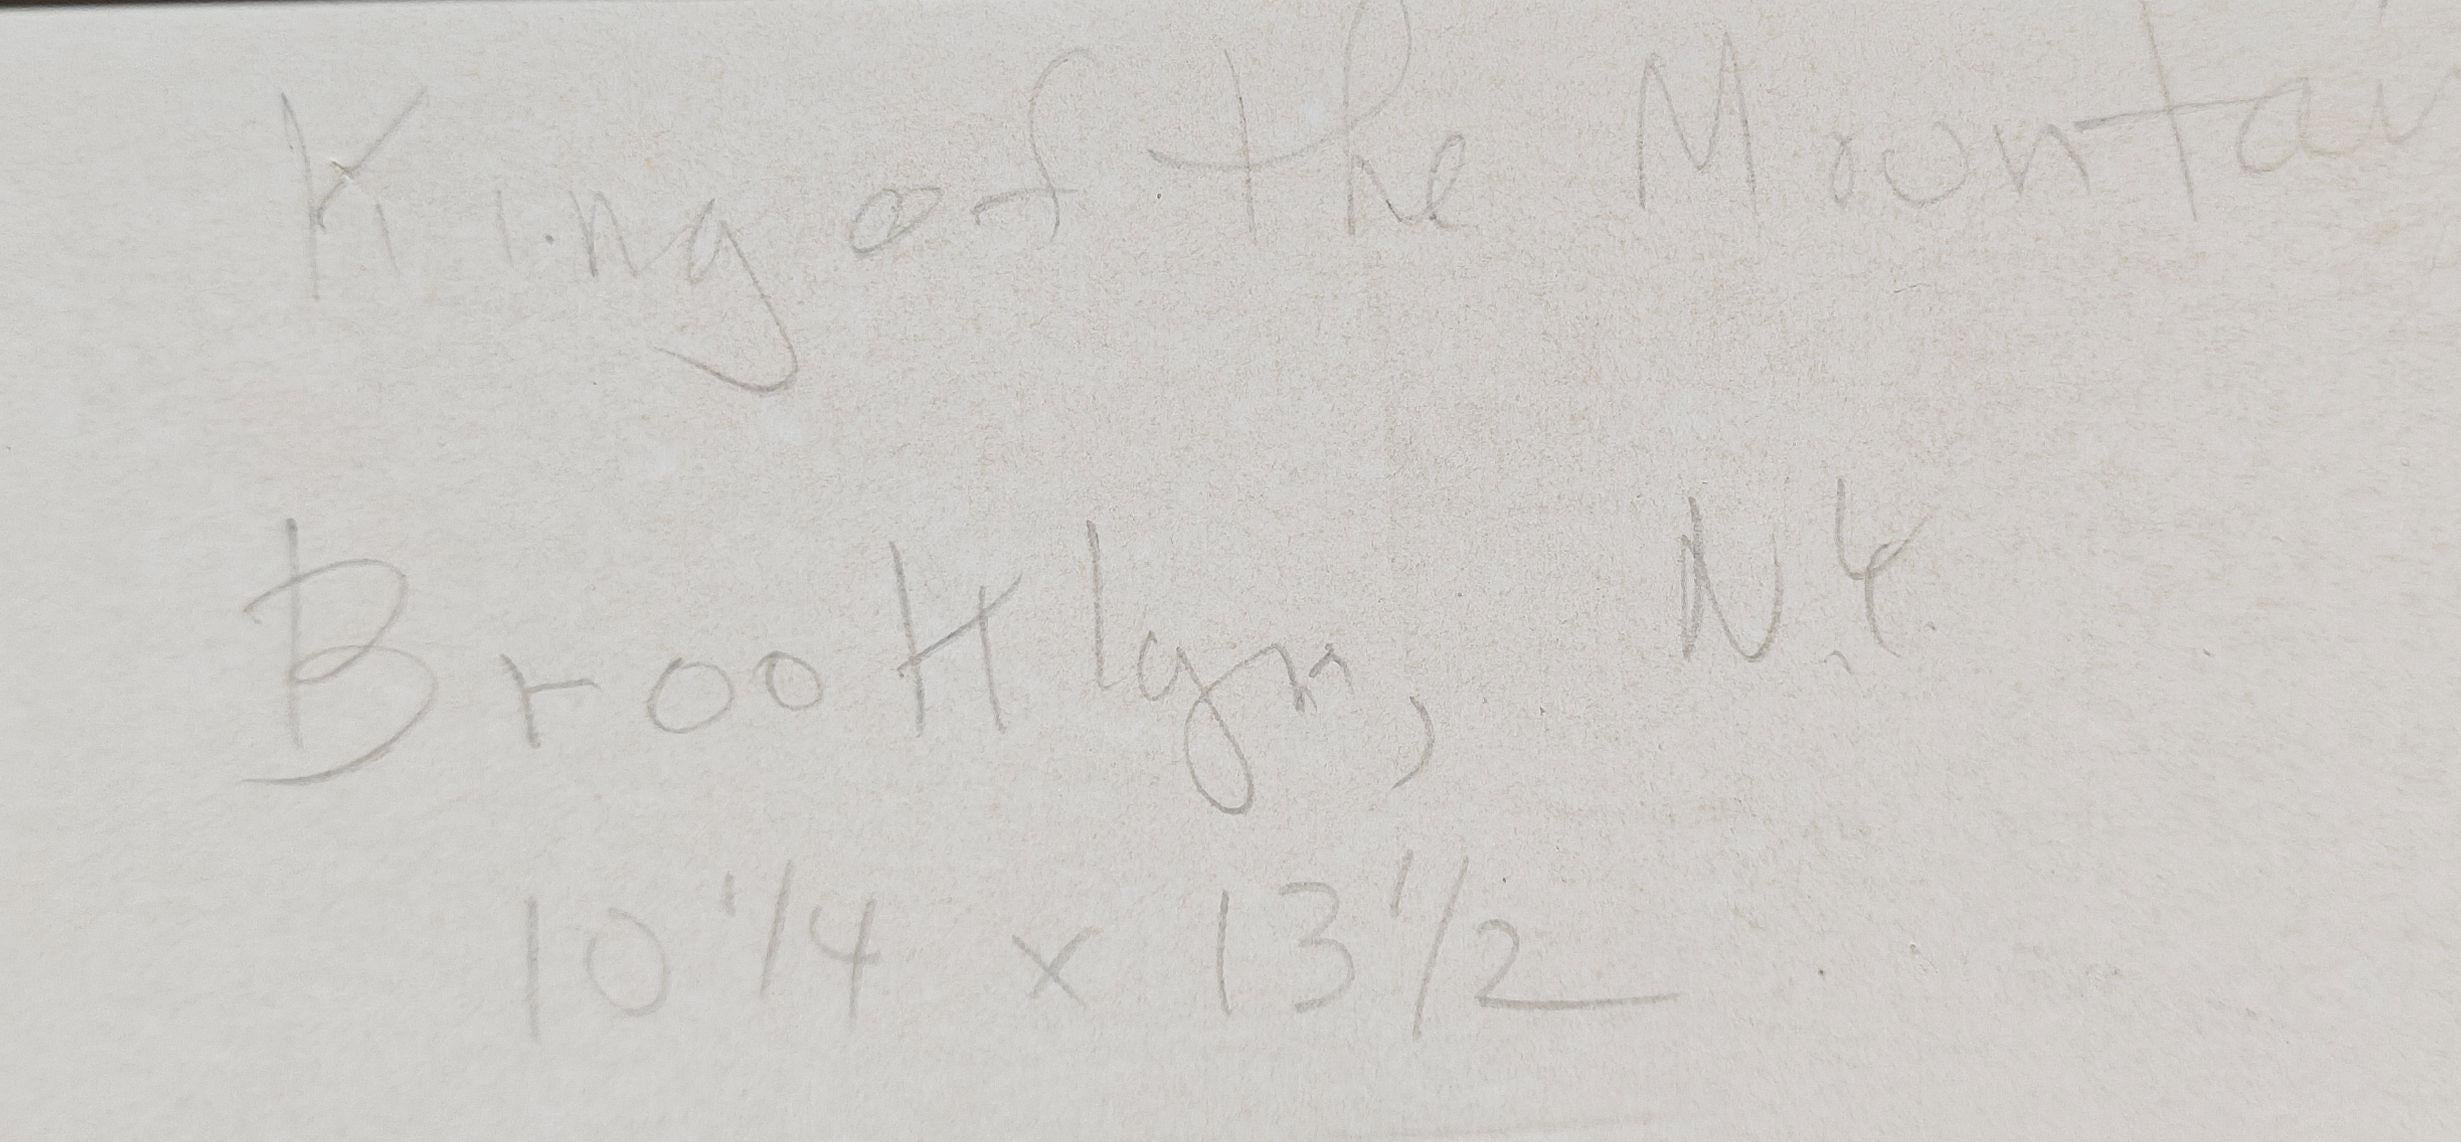 King of the Mountai
Brooklyn, N.Y.
10 1/4 x 13 1/2